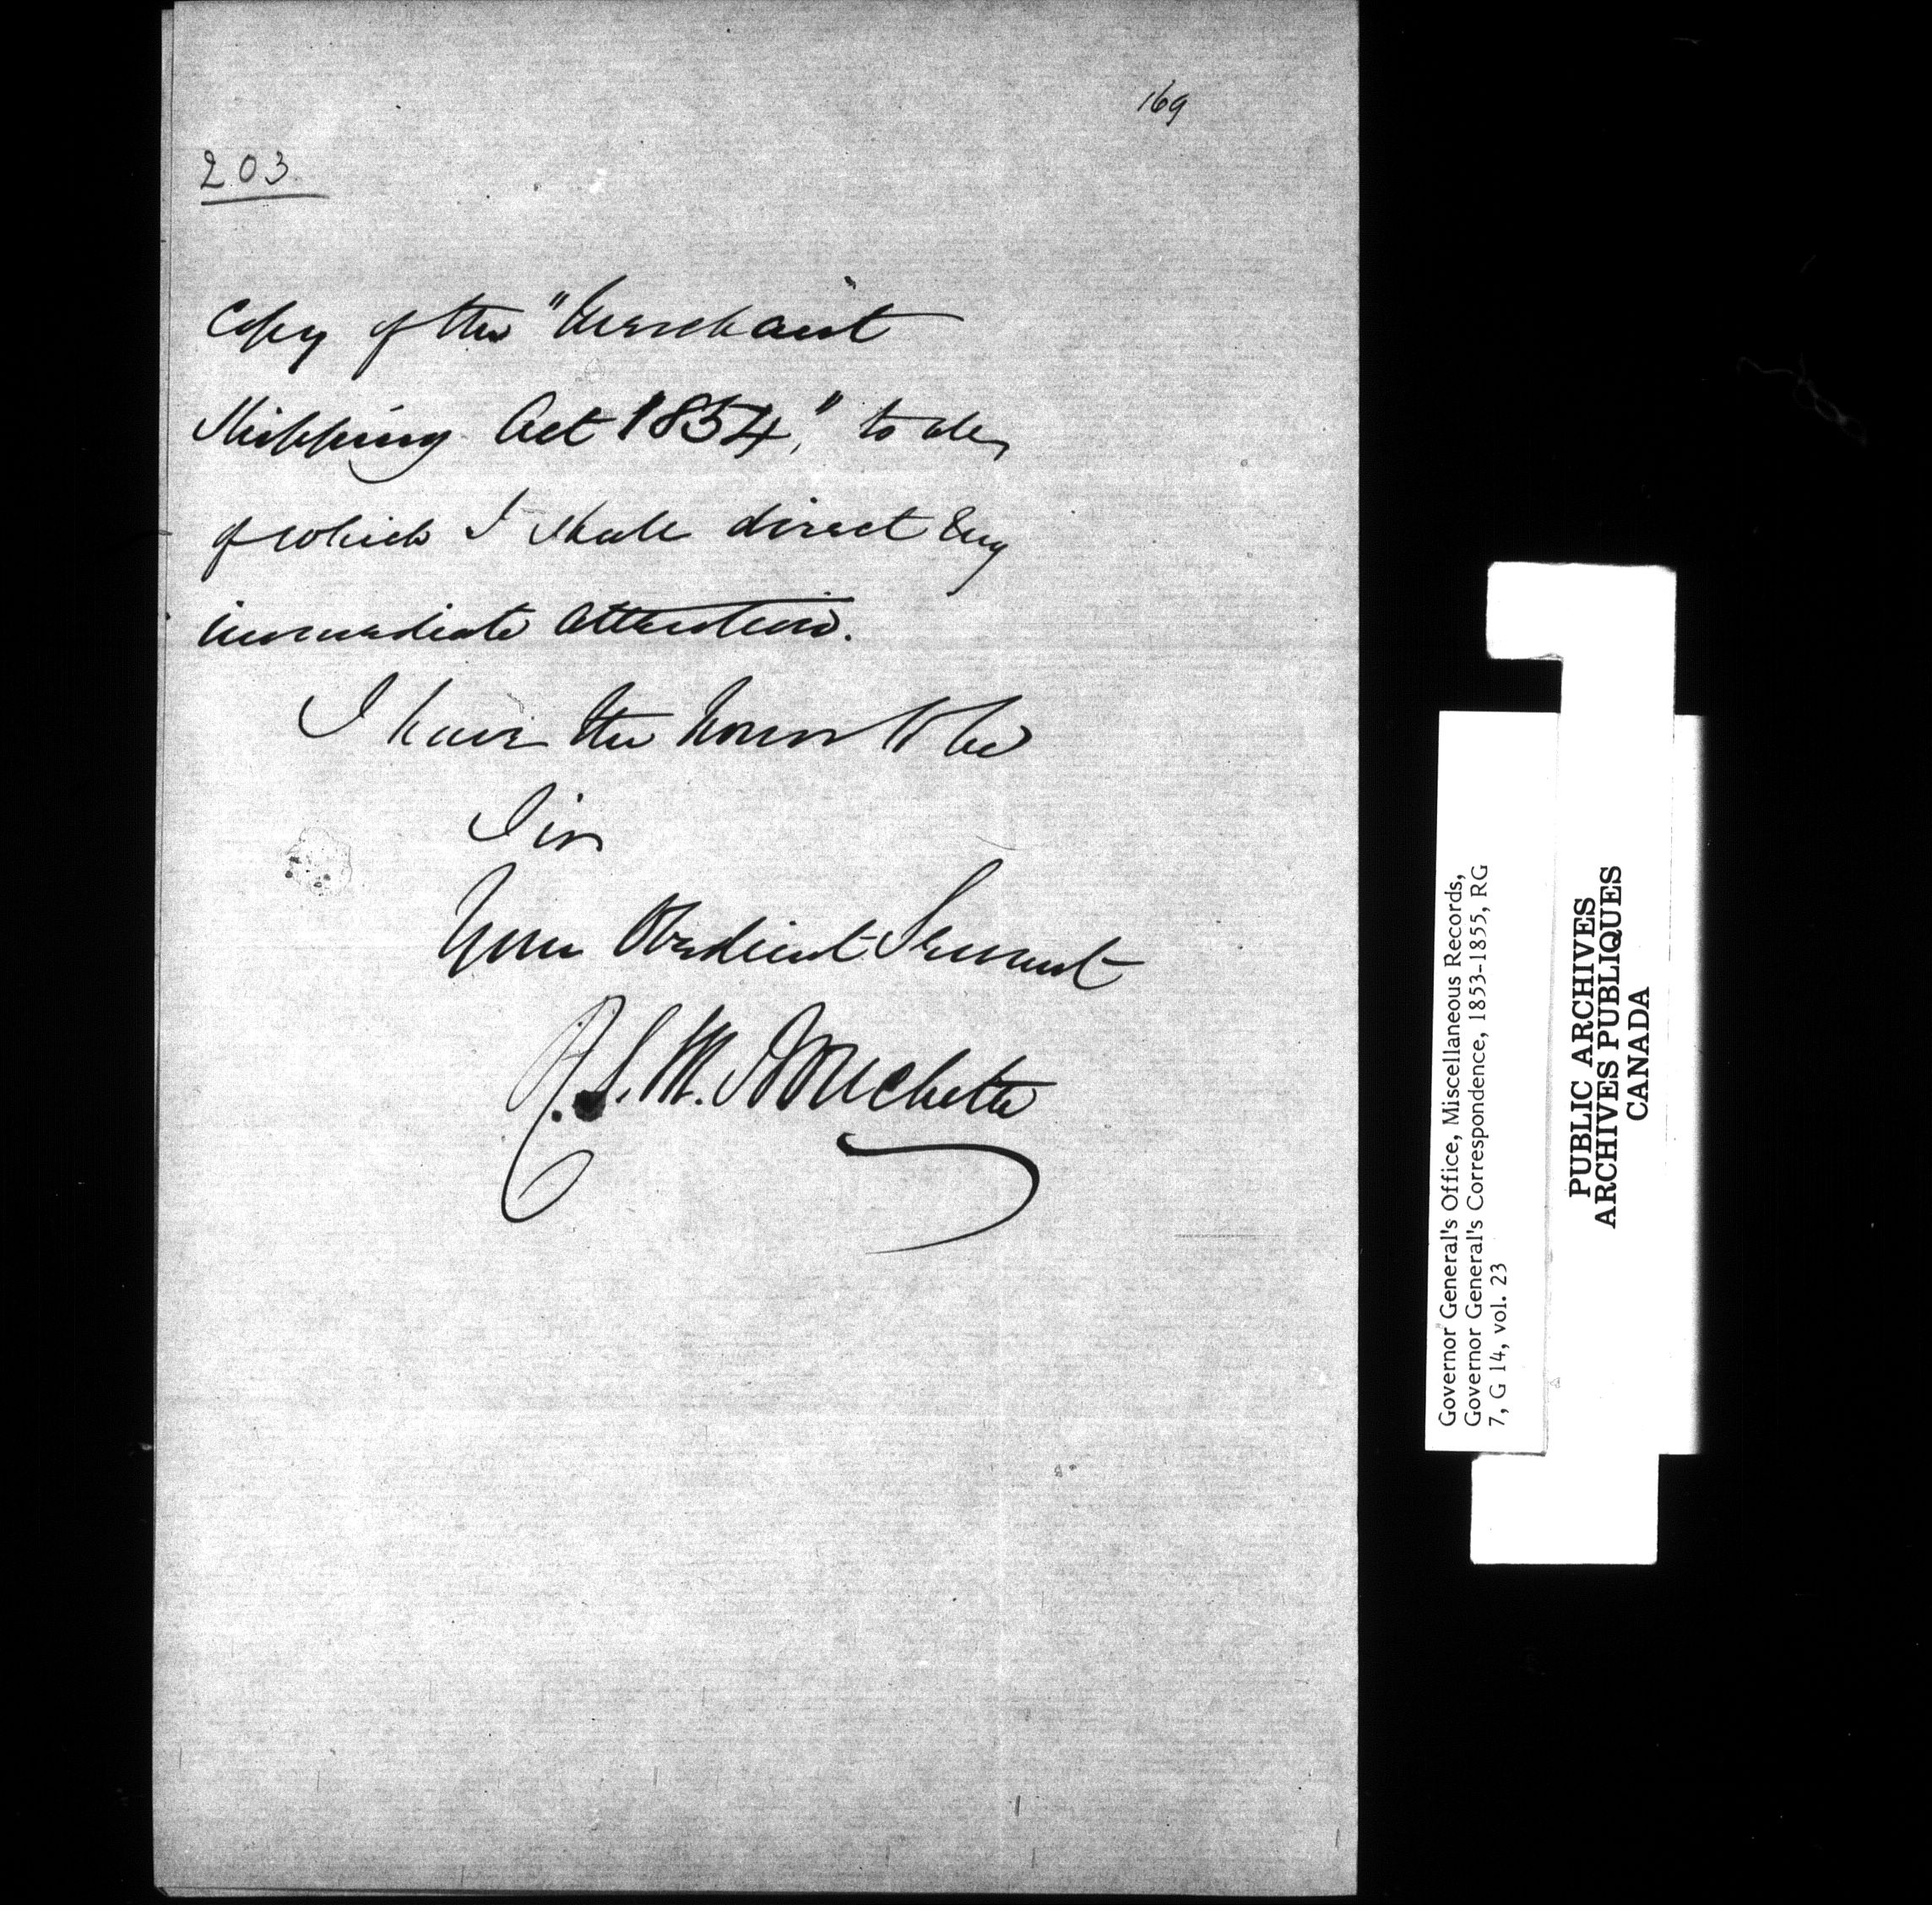 169
203
Copy of the "Merchant
Shipping Act 1854," to
of which I shall direct my
immediate attention.
I have the honor to be
Sir
Your Obedient Servant
R.S.M. Bouchette
Governor General's Office, Miscellaneous Records,
Governor General's Correspondence, 1853-1855, RG
7, G 14, vol. 23
PUBLIC ARCHIVES
ARCHIVES PUBLIQUES
CANADA